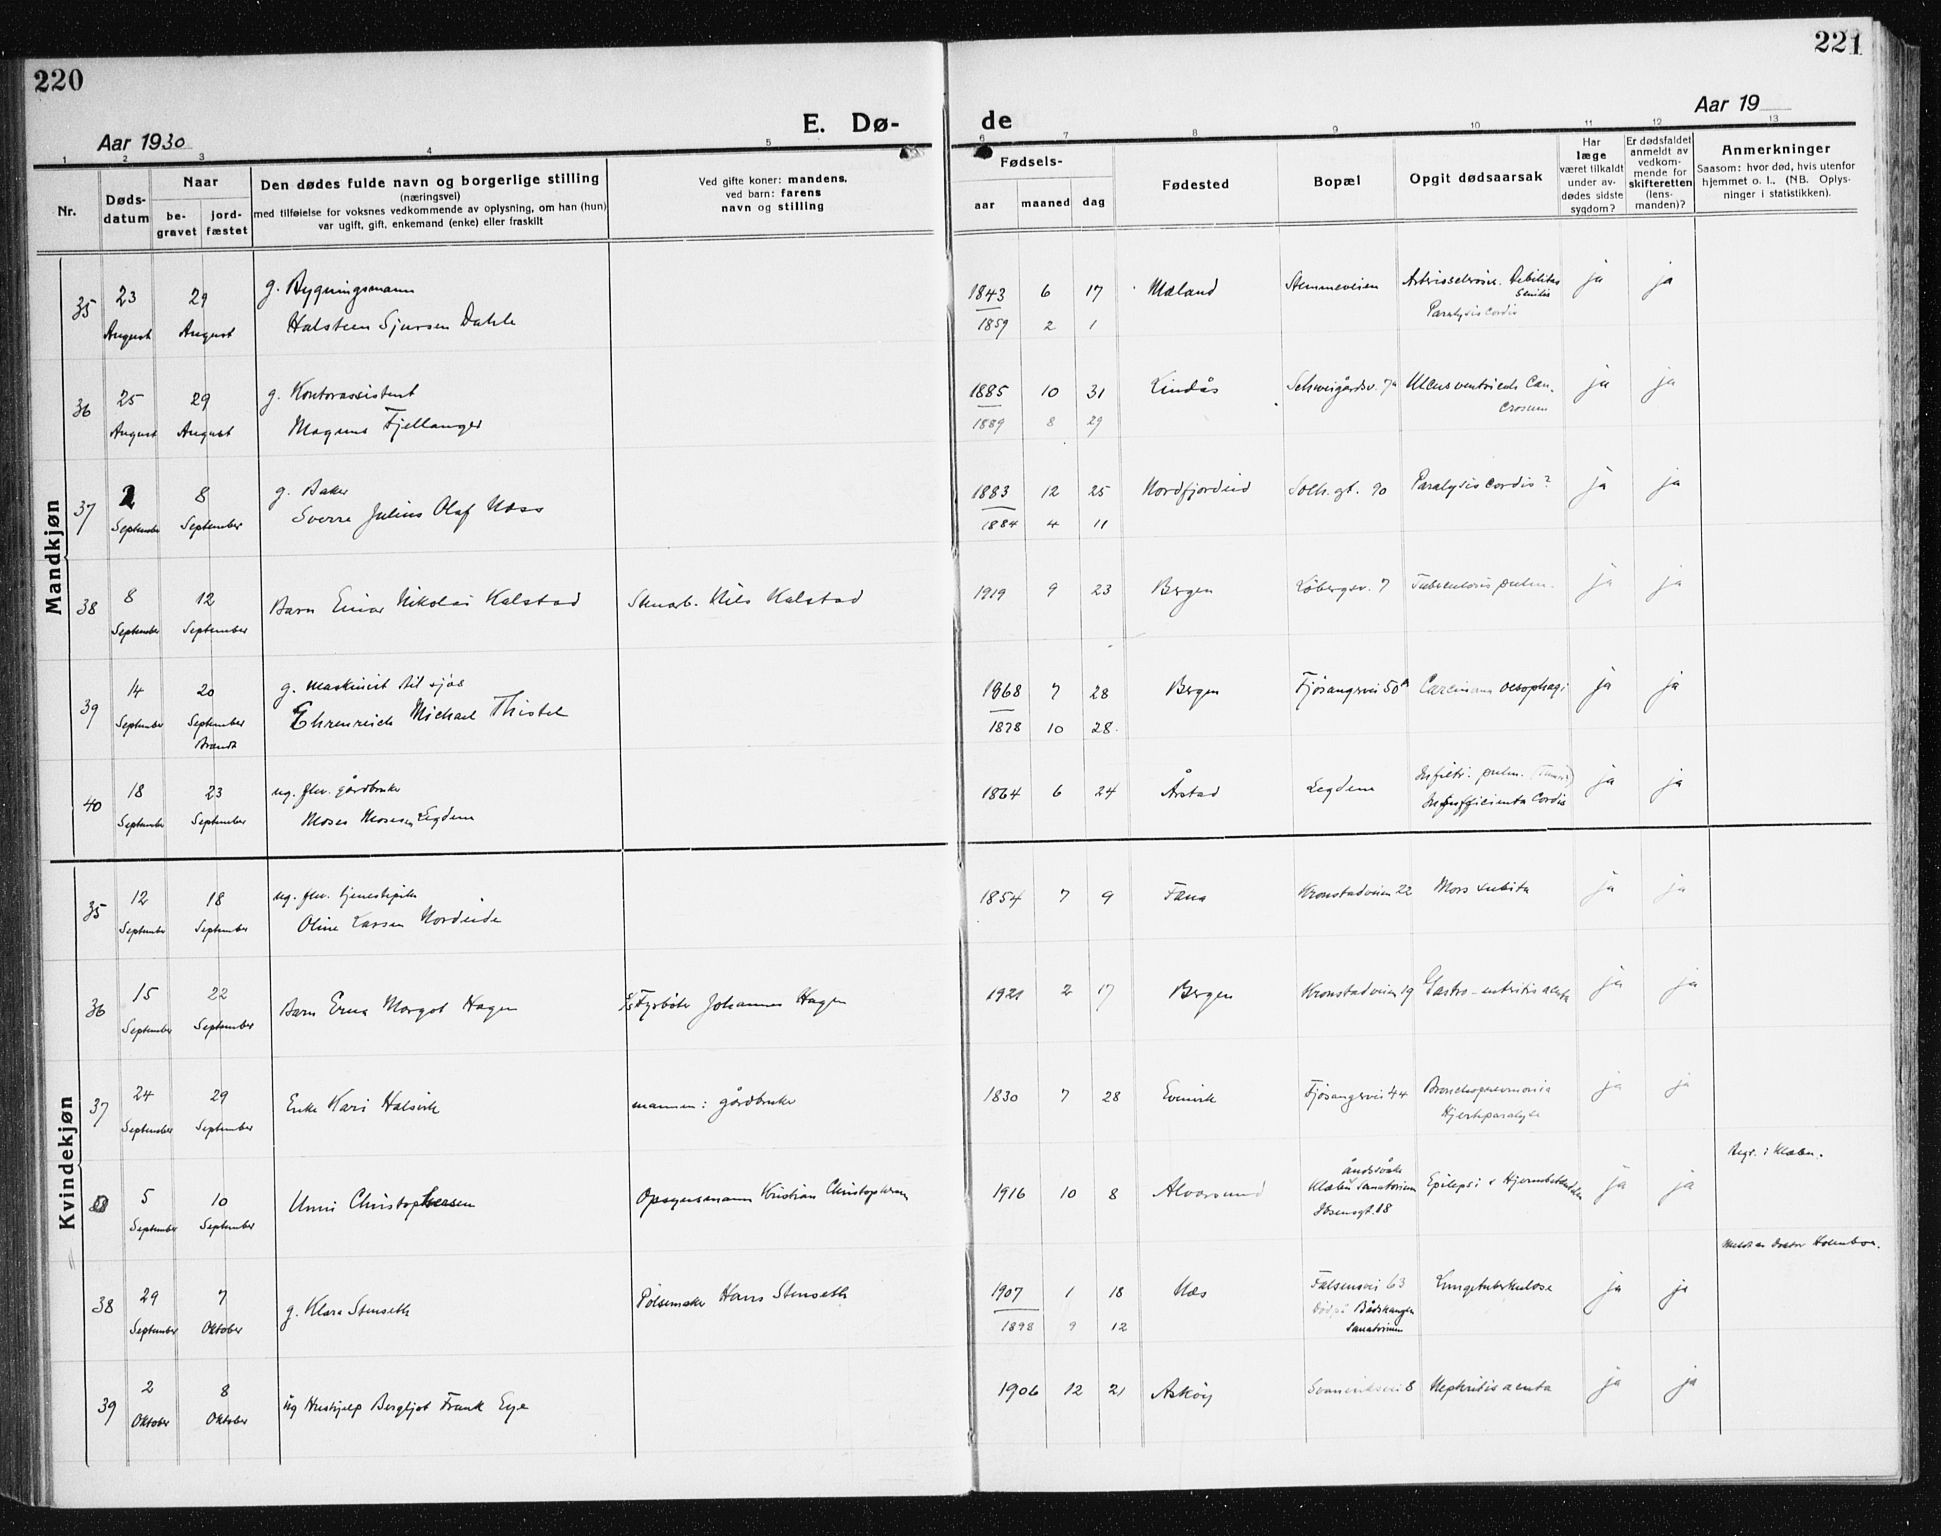 220
221
Aar 1930
E. Dø-
de
Aar 19
1 2 3 4 5 6 7 8 9 10 11 12 13
Nr.
Døds-
datum
Naar
be-
gravet
jord-
fæstet
Den dødes fulde navn og borgerlige stilling
(næringsvei)
med tilføielse for voksnes vedkommende av oplysning, om han (hun)
var ugift, gift, enkemand (enke) eller fraskilt
Ved gifte koner: mandens,
ved barn: farens
navn og stilling
Fødsels-
aar maaned dag
Fødested
Bopæl
Opgit dødsaarsak
Har
læge
været tilkaldt
under av-
dødes sidste
sygdom?
Er dødsfaldet
anmeldt av
vedkom-
mende for
skifteretten
(lens-
manden)?
Anmerkninger
Saasom: hvor død, hvis utenfor
hjemmet o. l., (NB. Oplys-
ninger i statistikken).
Mandkjøn
35 23 August 29 August g. Bygningsmann
Halsteen Sjursen Dahle
1843 6 17 Mæland Stemmeveien Debilitas senilis ja ja
1859 2 1 Paralysis cordis
36 25 August 29 August g. Kontorassistent
Magnus Fjellanger
1885 10 31 Lindås Schweigårdsv. 7a Ulcus ventriculi Can-
crosum ja ja
1889 8 29
37 2 September 8 September g. Baker
Sverre Julius Olaf Næss
1883 12 25 Nordfjordeid Solh.gt. 90 Paralysis cordis? ja ja
1884 4 11
38 8 September 12 September Barn Einar Nikolai Kalstad Stenarb. Nils Kalstad
1919 9 23 Bergen Løbergsv. 7 Tuberculosis pulm. ja ja
39 14 September 20 September Brændt g. maskinist til sjøs
Ehrenreich Michael Thistel
1868 7 28 Bergen Fjøsangervei 50a Carcinoma oesophagi ja ja
1878 10 28
40 18 September 23 September ug. fhv. gårdbruker
Moses Mosesen Legdene
1864 6 24 Årstad Legdene Infiltr. pulm.
Insufficientia Cordis ja ja
Kvindekjøn
35 12 September 18 September ug. fhv. tjenestepike
Oline Larsen Nordeide
1854 7 9 Fana Kronstadveien 22 Mors subita ja ja
36 15 September 22 September Barn Erna Margot Hagen Fyrbøter Johannes Hagen
1921 2 17 Bergen Kronstadveien 19 Gastro-enteritis acuta ja ja
37 24 September 29 September Enke Kari Halsvik mannen: gårdbruker
1830 7 28 Evinvik Fjøsangervei 44 Bronchopneumonia
Hjerteparalyse ja ja
5 September 10 September Unni Christophersen Opsynsmann Kristian Christophersen
1916 10 8 Alversund åndssvake
Klæbu sanatorium
Ibsensgt. 18
Epilepsi ja ja
Begr. i Klæbu.
38 29 September 7 Oktober g. Klara Stenseth Pølsemaker Hans Stenseth
1907 1 18 Næs Falsensvei 63
Død på
Sanatorium
Lungetuberkulose ja ja
1898 9 12
39 2 Oktober 8 Oktober ug Hushjelp Bergljot Frank Eye
1906 12 21 Askøy Svaneviksvei 8 Nephritis acuta ja ja